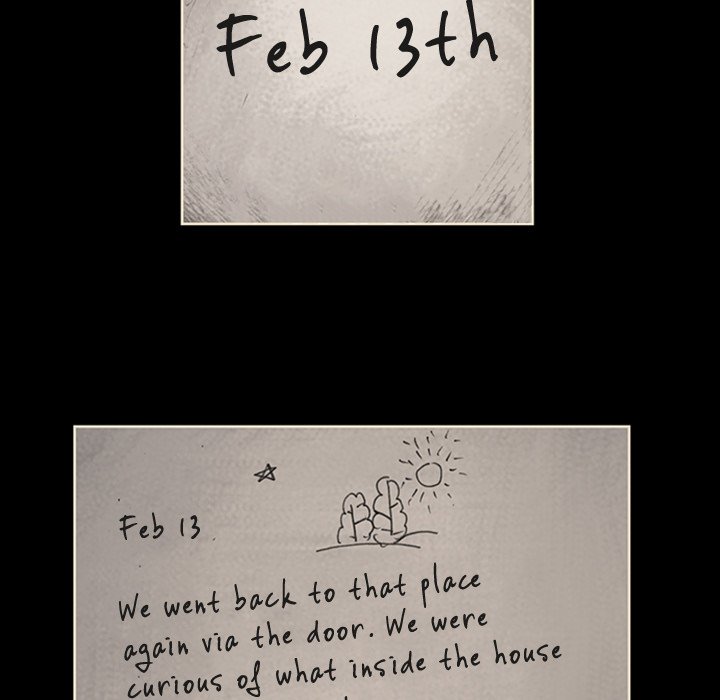 Feb 13th
Feb 13
We went back to that place
again via the door. We were
curious of what inside the house